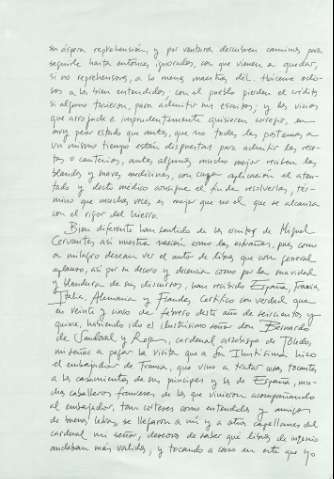 su áspera reprehensión, y por ventura descubren caminos para
seguirle hasta entonces ignorados, con que vienen a quedar,
si no reprehensores, a lo menos maestros del. Hácense odio-
sos a los bien entendidos; con el pueblo pierden el crédito
si alguno tuvieron, para admitir sus escritos; y los vicios
que arrojada e imprudentemente quisieren corregir, en
muy peor estado que antes, que no todas las postemas a
un mismo tiempo están dispuestas para admitir las rece-
tas o cauterios; antes algunos mucho mejor reciben las
blandas y suaves medicinas, con cuya aplicación el aten-
tado y docto médico consigue el fin de resolverlas, tér-
mino que muchas veces es mejor que no el que se alcanza
con el rigor del hierro.
Bien diferente han sentido de los escritos de Miguel
Cervantes así nuestra nación como las extrañas, pues como
a milagro desean ver el autor de libros que con general
aplauso, así por su decoro y decencia como por la suavidad
y blandura de sus discursos, han recibido España, Francia,
Italia, Alemania y Flandes. Certifico con verdad que
en veinte y cinco de febrero deste año de seiscientos y
quince, habiendo ido el ilustrísimo señor don Bernardo
de Sandoval y Rojas, cardenal arzobispo de Toledo,
mi señor, a pagar la visita que a Su Ilustrísima hizo
el embajador de Francia, que vino a tratar cosas tocantes
a los casamientos de sus príncipes y los de España, mu-
chos caballeros franceses de los que vinieron acompañando
al embajador, tan corteses como entendidos y amigos
de buenas letras, se llegaron a mí y a otros capellanes del
cardenal mi señor, deseosos de saber qué libros de ingenio
andaban más validos, y tocando acaso en este que yo